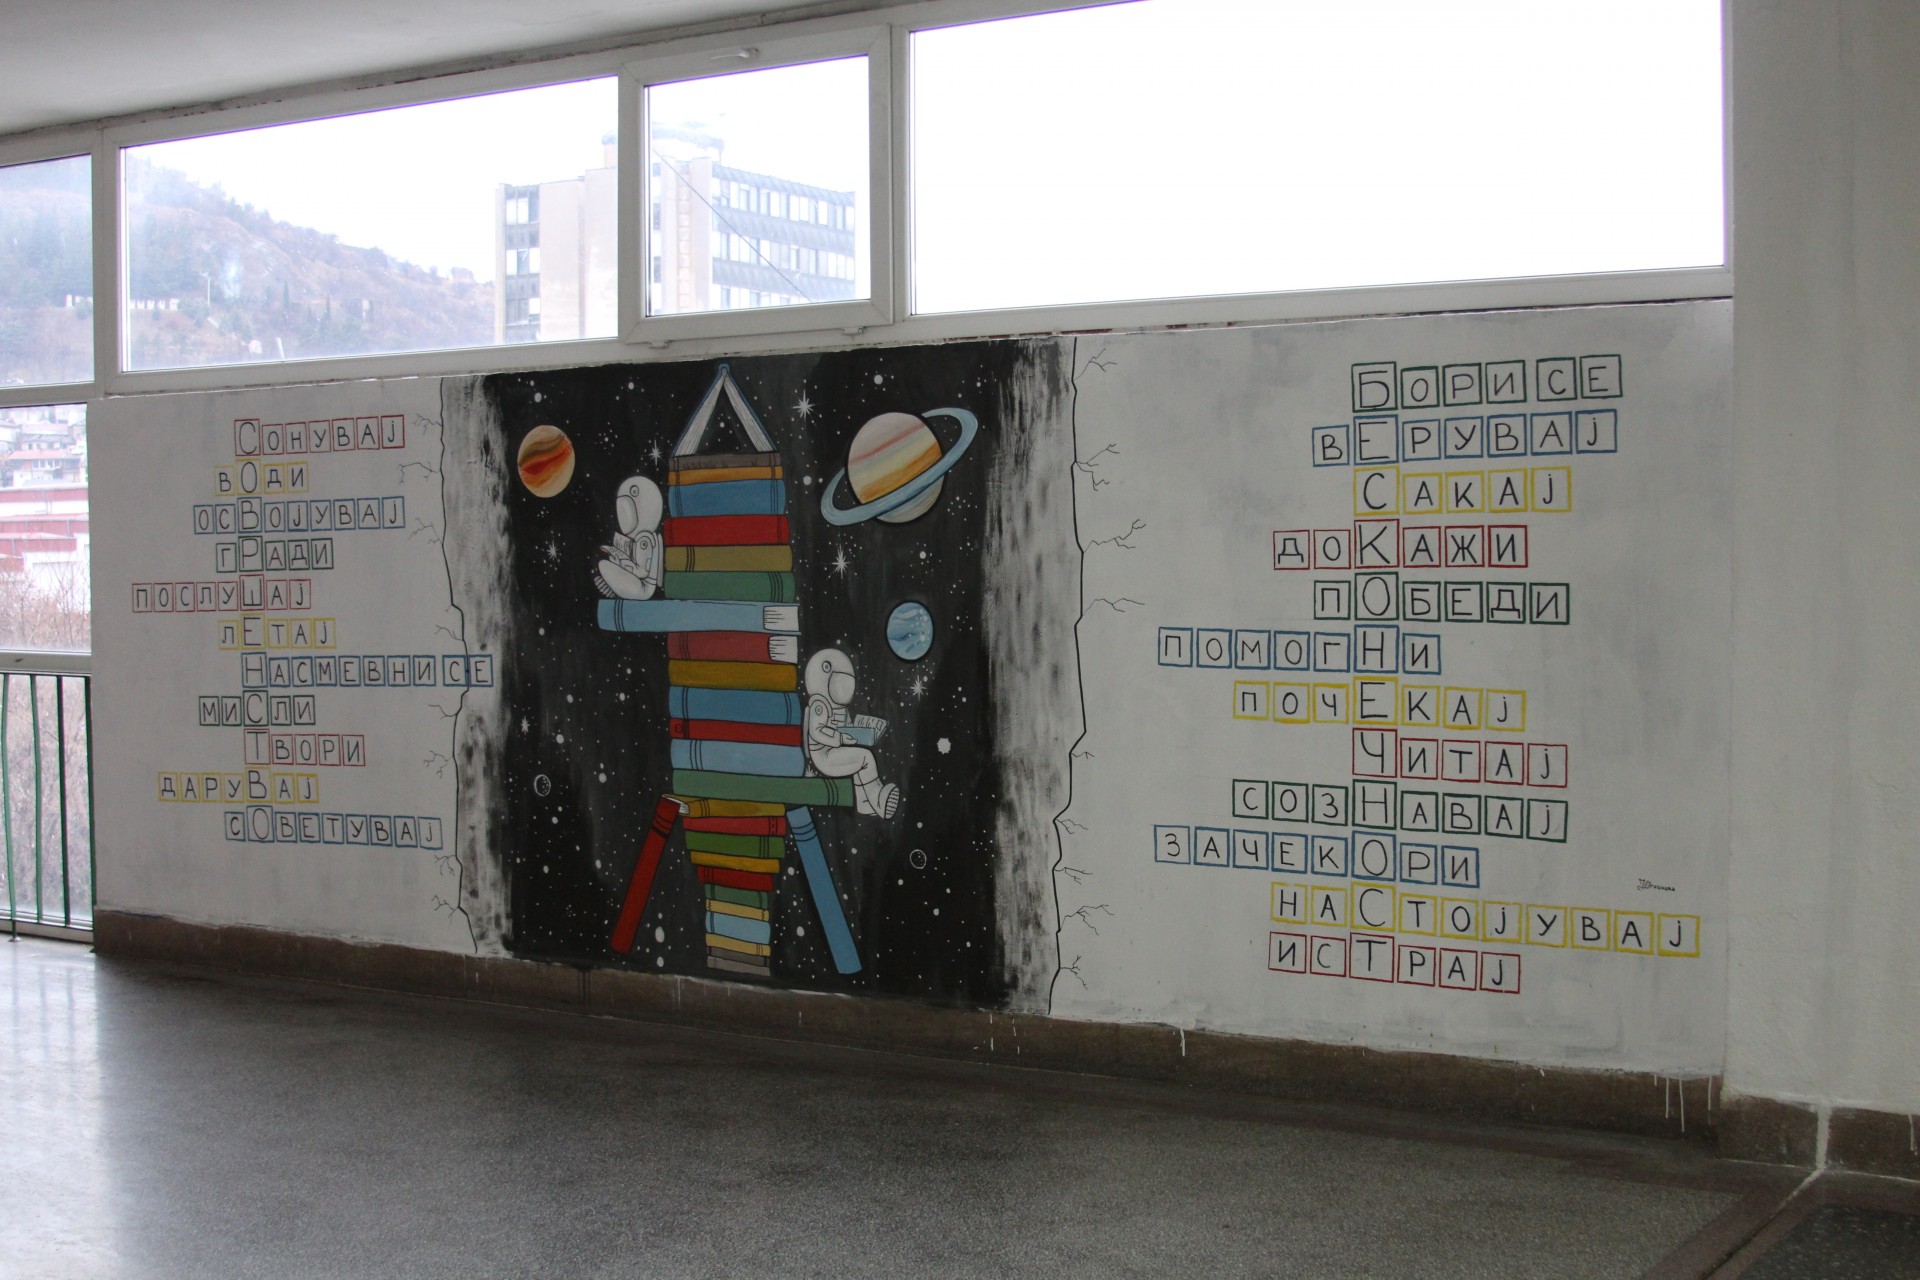 СОНУВАЈ
ВОДИ
ОСВОЈУВАЈ
ГРАДИ
ПОСЛУШАЈ
ЛЕТАЈ
НАСМЕВНИ СЕ
МИСЛИ
ТВОРИ
ДАРУВАЈ
СОВЕТУВАЈ
БОРИ СЕ
ВЕРУВАЈ
САКАЈ
ДОКАЖИ
ПОБЕДИ
ПОМОГНИ
ПОЧЕКАЈ
ЧИТАЈ
СОЗНАВАЈ
ЗАЧЕКОРИ
НАСТОЈУВАЈ
ИСТРАЈ